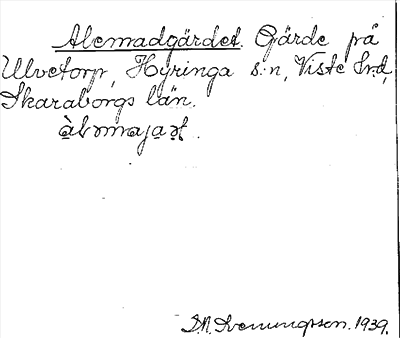 Alemadgärdet. Gärde på
Ulvetorp, Hyringa s:n, Viste hrd,
Skaraborgs län.

S.N. Svenungsson. 1939.